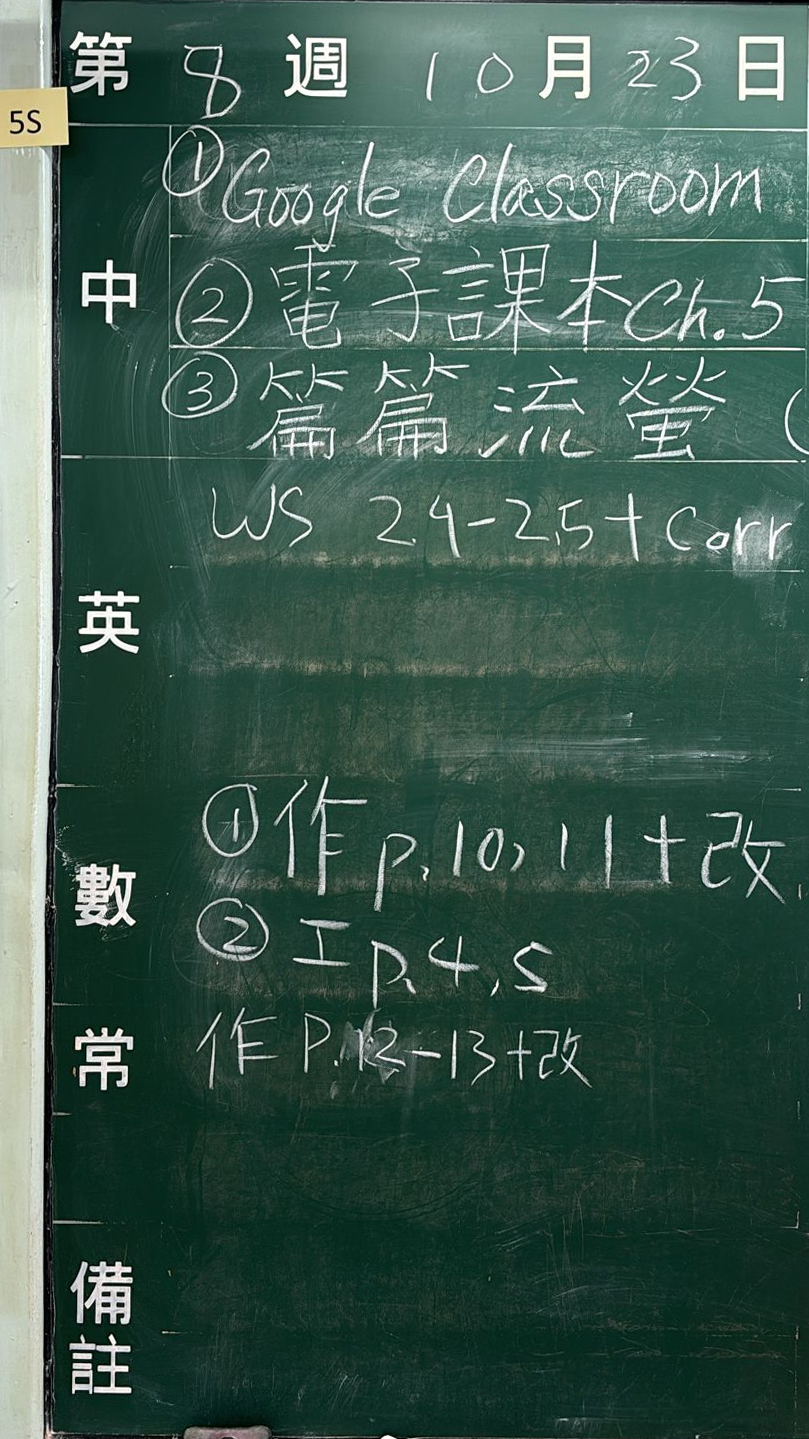 第 8 週 10月23日
5S
中
①Google Classroom
②電子課本Ch.5
③篇篇流螢(
英
WS 2.4-2.5+Corr
數
①作p.10,11+改
②工p.4,5
常
作P.12-13+改
備註